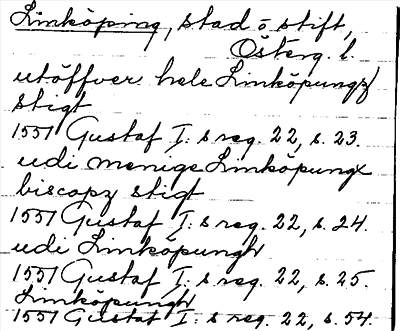 Linköping, stad o stift,
Österg. l.
utöffver hele Linköpungz
stigt
1551 Gustaf I: s reg. 22, s. 23.
udi menige Linköpungx
biscopz stigt
1551 Gustaf I: s reg. 22, s. 24.
udi Linköpungh
1551 Gustaf I: s reg. 22, s. 25.
Linköpungh
1551 Gustaf I: s reg. 22, s. 54.